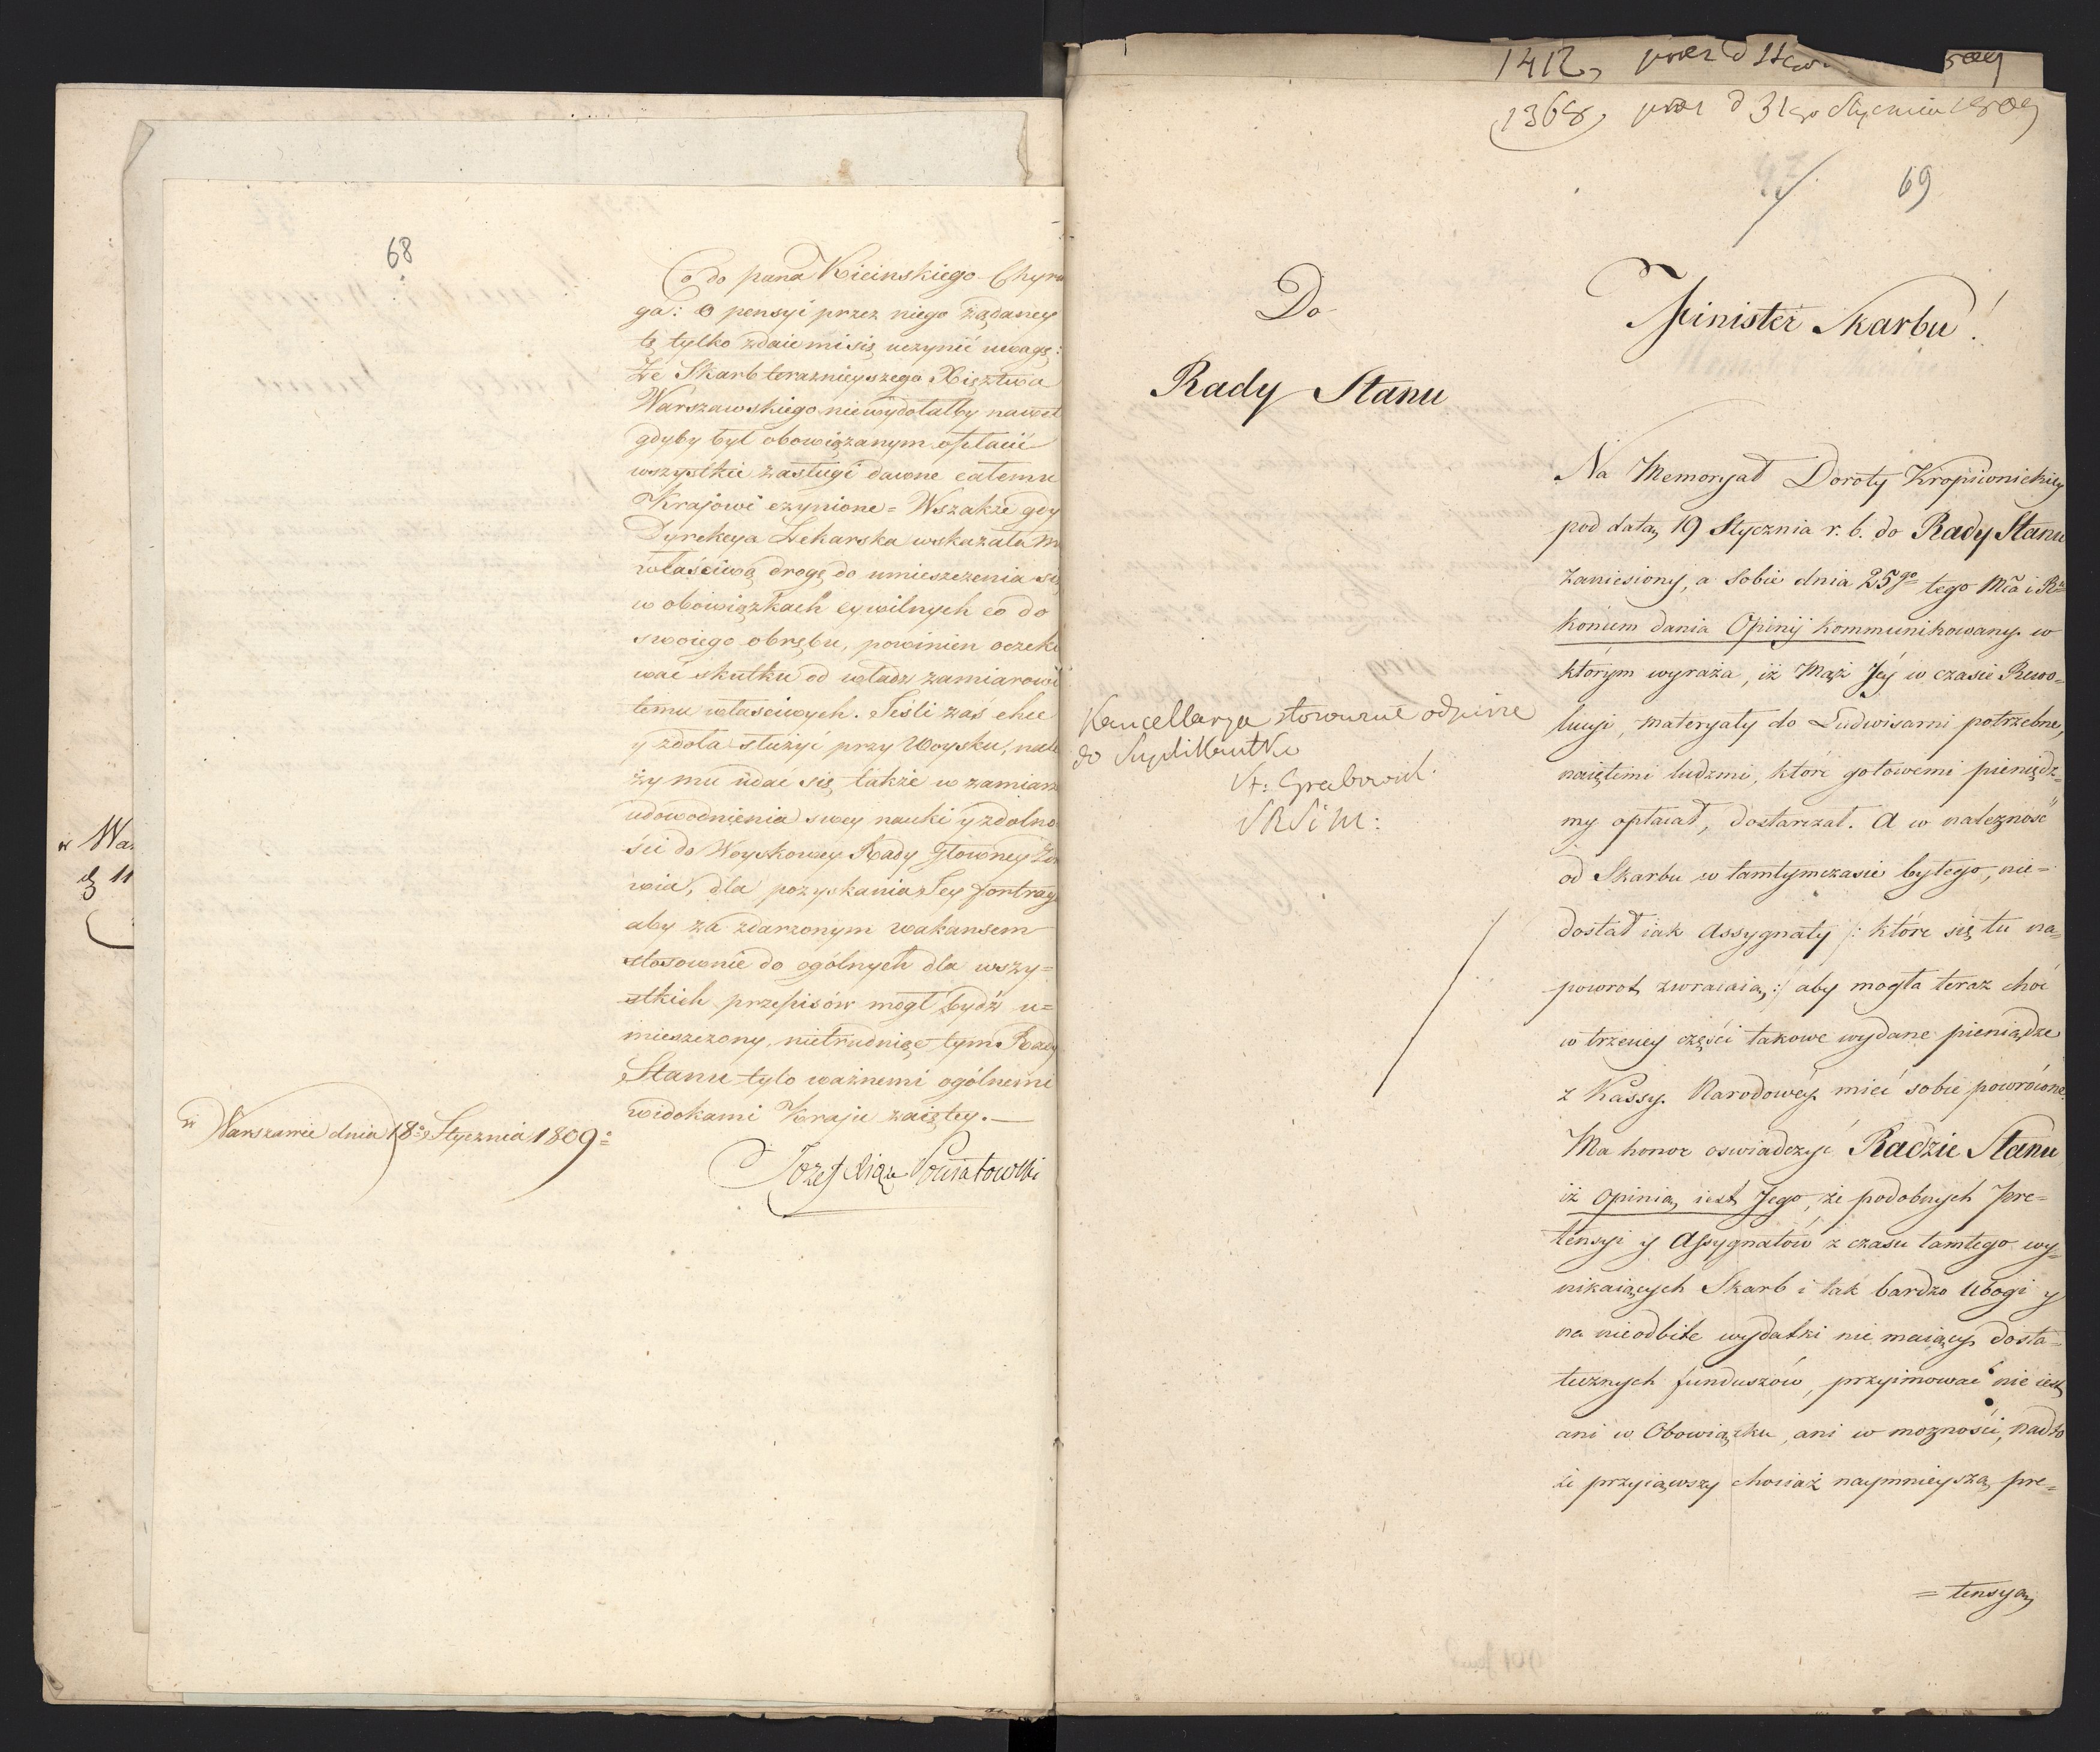 68
Co do pana Kicinskiego Chyru
ga: O pensyi przez niego żądaney
tę tylko zdaie mi się uczynić uwagę:
Że Skarb teraznieyszego Xięztwa
Warszawskiego niewydołałby nawet
gdyby był obowiązanym opłacić
wszystkie zasługi dawne całemu
Krajowi czynione = Wszakże gdy
Dyrekcya Lekarska wskazała m
właściwą drogę do umieszczenia się
w obowiązkach cywilnych co do
swoiego obrębu, powinien oczeki
wać skutku od władz zamiarowi
temu właściwych. Jeśli zaś chce
y zdoła służyć przy Woysku, nale
ży mu udać się także w zamiarze
udowodnienia swey nauki y zdolno
ści do Woyskowey Rady Głowney Zdro
wia, dla pozyskania Jey
aby za zdarzonym wakansem
stosownie do ogólnych dla wszy=
stkich przepisów mogł bydź u=
mieszczony, nietrudniąc tym Rady
Stanu tylo ważnemi ogólnemi
widokami Kraju zaiętey.
w Warszawie dnia 18. Stycznia 1809.
Jozef Xiąże Poniatowski
w Wa
d 11
1412,
1368, prez d 31go Stycznia 1809
69
Do
Rady Stanu
Minister Skarbu!
Na Memoryał Doroty Kropiwnickiey
pod datą 19 Stycznia r. b. do Rady Stanu
zaniesiony, a Sobie dnia 25go tego Mca i R
koncem dania Opinij kommunikowany w
którym wyraża, iż Mąż Jéy w czasie Rewo=
lucyi, materyały do Ludwisarni potrzebne,
naiętemi ludzmi, które gotowemi pieniędz=
my opłacał, dostarczał. A w należność
od Skarbu w tamtymczasie byłego, nie=
dostał iak Assygnaty /: które się tu na=
powrot zwracaią :/ aby mogła teraz choć
w trzeciey części takowe wydane pieniądze
z Kassy Narodowéy mieć sobie powrócone.
Ma honor oswiadczyć Radzie Stanu
iż opinią iest Jego, że podobnych Pre=
tensyi y Assygnatow z czasu tamtego wy=
nikaiących Skarb i tak bardzo Ubogi y
na nieodbite wydatki nie maiący dosta=
tecznych funduszów, przyimować nie iest
ani w Obowiązku, ani w możności, nadto
że przyiąwszy chociaż naymnieyszą pre=
= tensyą
Kancellarya stosownie odpisze
do Supplikantki
St: Grabowski
SRSiM: